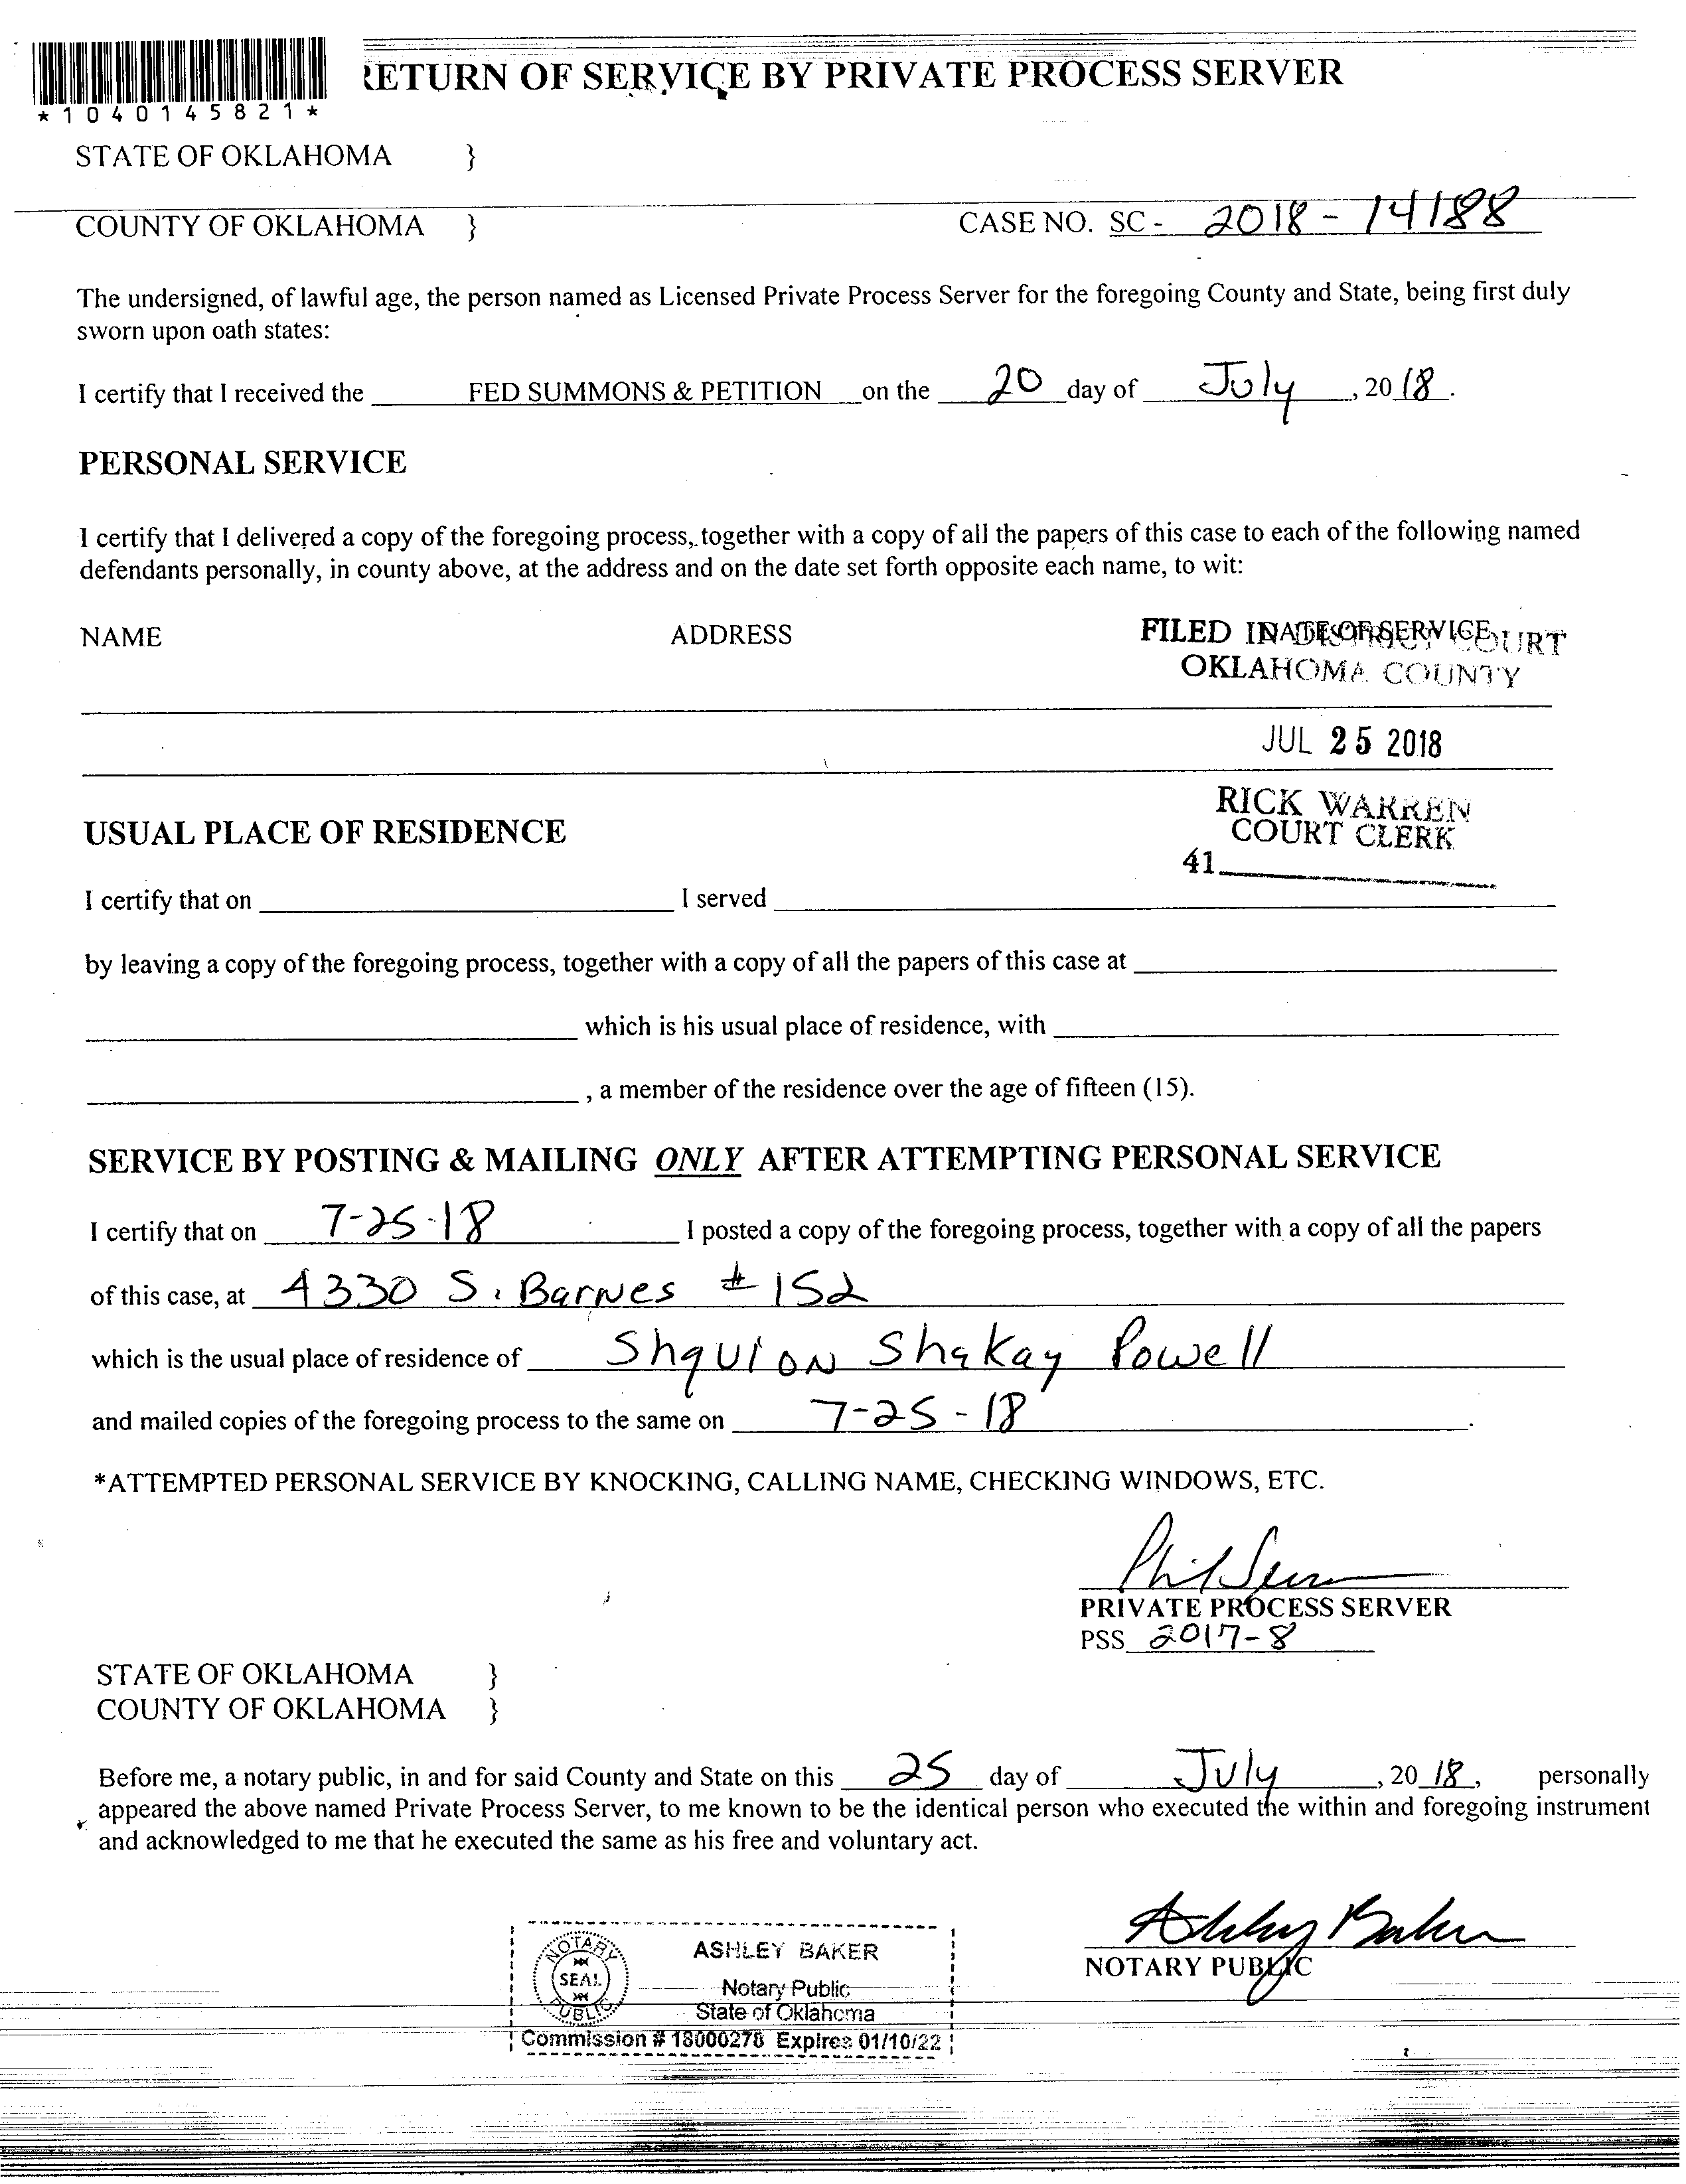 RETURN OF SERVICE BY PRIVATE PROCESS SERVER
*1040145821*
STATE OF OKLAHOMA }
COUNTY OF OKLAHOMA } CASE NO. SC - 2018 - 14188
The undersigned, of lawful age, the person named as Licensed Private Process Server for the foregoing County and State, being first duly
sworn upon oath states:
I certify that I received the FED SUMMONS & PETITION on the 20 day of July, 2018.
PERSONAL SERVICE
I certify that I delivered a copy of the foregoing process, together with a copy of all the papers of this case to each of the following named
defendants personally, in county above, at the address and on the date set forth opposite each name, to wit:
NAME ADDRESS DATE OF SERVICE
FILED IN DISTRICT COURT
OKLAHOMA COUNTY
JUL 25 2018
RICK WARREN
COURT CLERK
41
USUAL PLACE OF RESIDENCE
I certify that on I served
by leaving a copy of the foregoing process, together with a copy of all the papers of this case at
which is his usual place of residence, with
, a member of the residence over the age of fifteen (15).
SERVICE BY POSTING & MAILING ONLY AFTER ATTEMPTING PERSONAL SERVICE
I certify that on 7-25-18 I posted a copy of the foregoing process, together with a copy of all the papers
of this case, at 4330 S. Barnes # 152
which is the usual place of residence of Shakay Powell
and mailed copies of the foregoing process to the same on 7-25-18.
*ATTEMPTED PERSONAL SERVICE BY KNOCKING, CALLING NAME, CHECKING WINDOWS, ETC.
PRIVATE PROCESS SERVER
PSS 2017-8
STATE OF OKLAHOMA }
COUNTY OF OKLAHOMA }
Before me, a notary public, in and for said County and State on this 25 day of July, 2018, personally
appeared the above named Private Process Server, to me known to be the identical person who executed the within and foregoing instrument
and acknowledged to me that he executed the same as his free and voluntary act.
Ashley Baker
NOTARY PUBLIC
NOTARY
SEAL
PUBLIC
ASHLEY BAKER
Notary Public
State of Oklahoma
Commission # 18000276 Expires 01/10/22